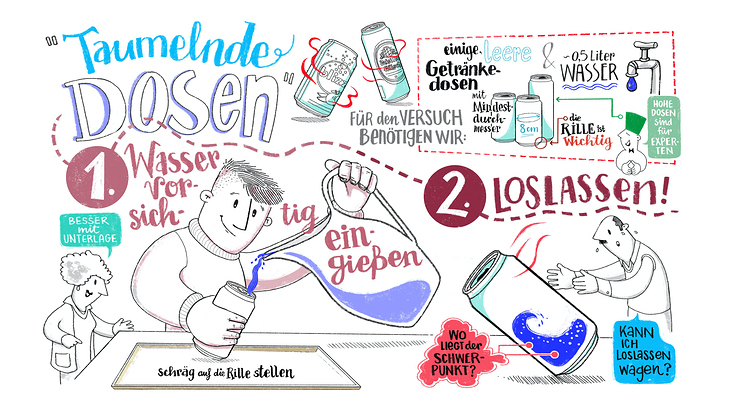 "Taumelnde
DOSEN"
FÜR den VERSUCH
BENÖTIGEN WIR:
einige leere
Getränke-
dosen
mit
Mindest-
durch-
messer
8cm
&
~0,5 Liter
WASSER
die
RILLE ist
wichtig
HOHE
DOSEN
sind
für
EXPER-
TEN
1. Wasser
vor-
sich-
tig
ein-
gießen
BESSER
mit
UNTERLAGE
schräg auf die Rille stellen
2. LOSLASSEN!
WO
liegt der
SCHWER-
PUNKT?
KANN
ICH
LOSLASSEN
WAGEN?